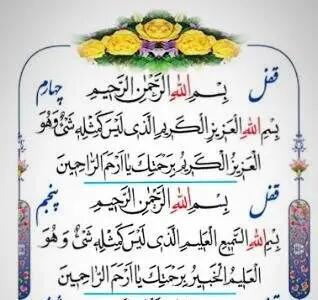 قفل چهارم
بِسْمِ اللهِ الرَّحْمٰنِ الرَّحِيمِ
بِسْمِ اللهِ الْعَزِيزِ الْكَرِيمِ الَّذِى لَيْسَ كَمِثْلِهِ شَىْءٌ وَ هُوَ
الْعَزِيزُ الْكَرِيمُ بِرَحْمَتِكَ يَا اَرْحَمَ الرَّاحِمِينَ
قفل پنجم
بِسْمِ اللهِ الرَّحْمٰنِ الرَّحِيمِ
بِسْمِ اللهِ السَّمِيعِ الْعَلِيمِ الَّذِى لَيْسَ كَمِثْلِهِ شَىْءٌ وَ هُوَ
الْعَلِيمُ الْخَبِيرُ بِرَحْمَتِكَ يَا اَرْحَمَ الرَّاحِمِينَ